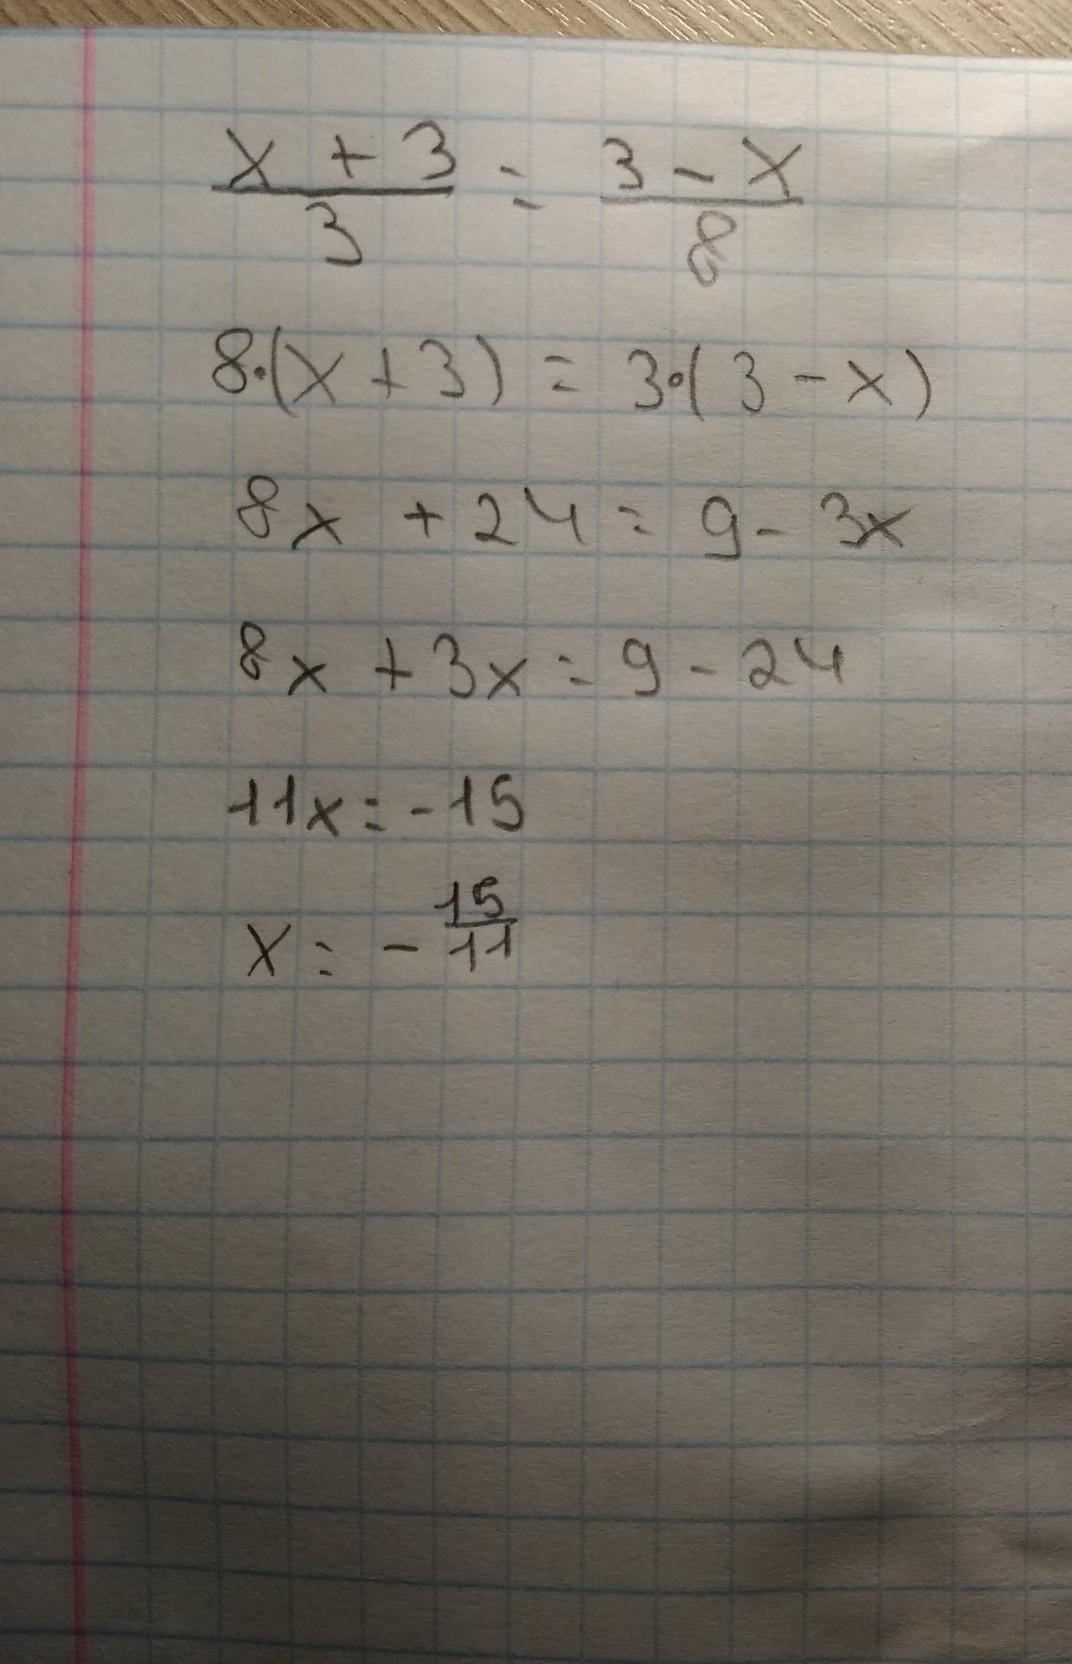 x + 3 / 3 = 3 - x / 8
8·(x + 3) = 3·(3 - x)
8x + 24 = 9 - 3x
8x + 3x = 9 - 24
11x = -15
x = - 15/11